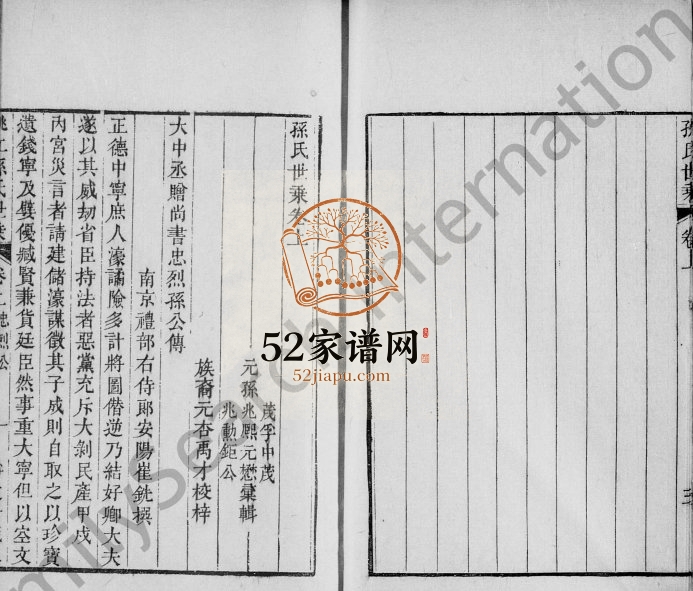 孫氏世乘
卷上
孫氏世乘卷上
茂孚申茂
元孫兆熙元懋彙輯
兆勲鉅公
族裔元杏禹才校梓
大中丞贈尚書忠烈孫公傳
南京禮部右侍郎安陽崔銑撰
正德中寧庶人濠譎險多計將圖僭逆乃結好卿大夫
遂以其威劫省臣持法者惡黨充斥大剝民產甲戌
內宮災言者請建儲濠謀徵其子成則自取之以珍寶
遺錢寧及嬖優臧賢兼貨廷臣然事重大寧但以空文
姚江孫氏世乘
卷上忠烈公
一
52家谱网
52jiapu.com
FamilySearch International